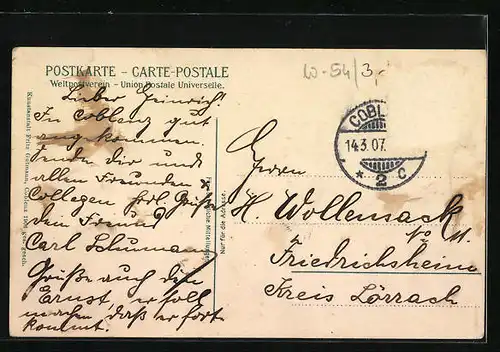 POSTKARTE – CARTE-POSTALE
Weltpostverein – Union Postale Universelle.
W-54/3,-
Lieber Heinrich!
In Coblenz gut
angekommen.
Sende dir und
allen Freunden
Collegen hrl. Grüße
dein Freund
Carl Schumann
Grüße auch den
Ernst, er soll
machen, daß er fort
kommt.
Für schriftliche Mitteilungen.
Nur für die Adresse.
COBL
14.3.07.
* 2 C
Herrn
H. Wollensack
Friedrichsheim
Kreis Lörrach